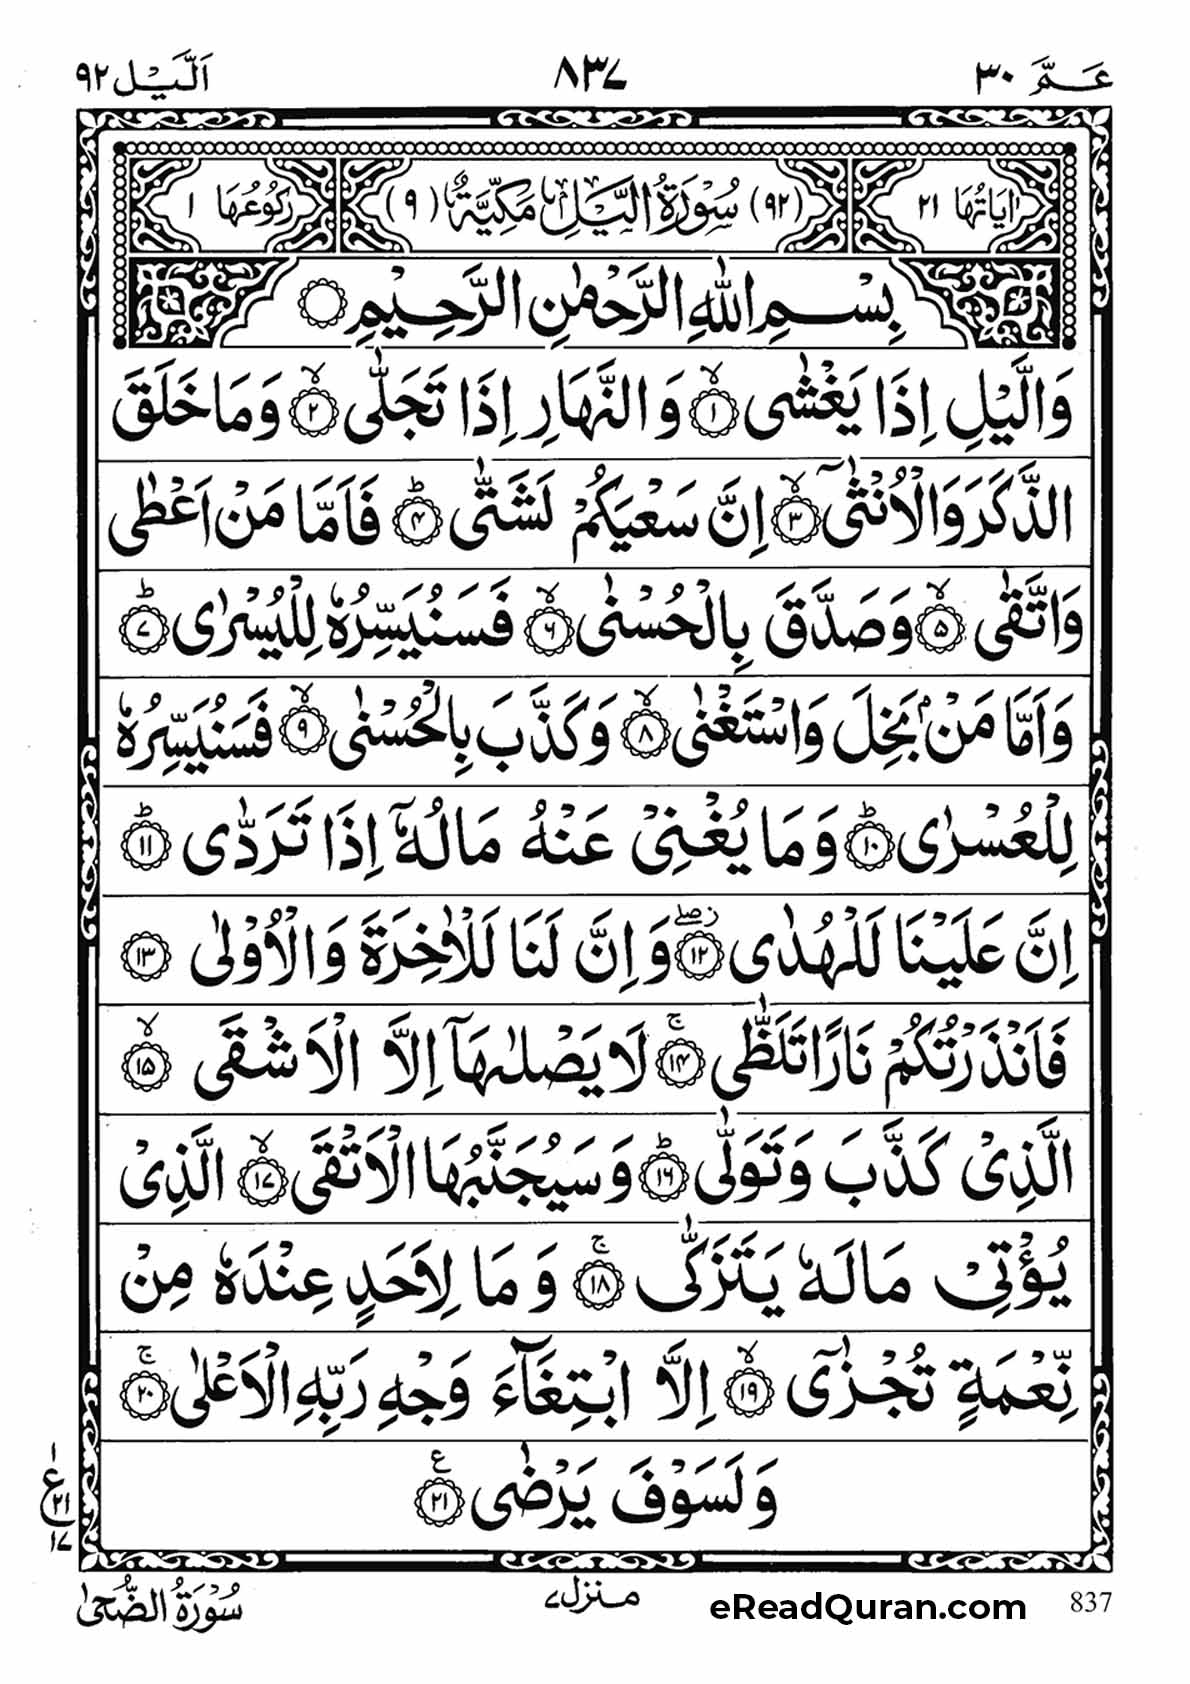 عَـمَّ ٣٠
٨٣٧
اَلَّيْل ٩٢
اٰيَاتُهَا ٢١
(٩٢) سُوْرَةُ الَّيْلِ مَكِّيَّةٌ (٩)
رُكُوْعُهَا ١
بِسْمِ اللّٰهِ الرَّحْمٰنِ الرَّحِيْمِ
وَالَّيْلِ اِذَا يَغْشٰى ۙ﴿١﴾ وَالنَّهَارِ اِذَا تَجَلّٰى ۙ﴿٢﴾ وَمَا خَلَقَ
الذَّكَرَ وَالْاُنْثٰىٓ ۙ﴿٣﴾ اِنَّ سَعْيَكُمْ لَشَتّٰى ؕ﴿٤﴾ فَاَمَّا مَنْ اَعْطٰى
وَاتَّقٰى ۙ﴿٥﴾ وَصَدَّقَ بِالْحُسْنٰى ۙ﴿٦﴾ فَسَنُيَسِّرُهٗ لِلْيُسْرٰى ؕ﴿٧﴾
وَاَمَّا مَنْۢ بَخِلَ وَاسْتَغْنٰى ۙ﴿٨﴾ وَكَذَّبَ بِالْحُسْنٰى ۙ﴿٩﴾ فَسَنُيَسِّرُهٗ
لِلْعُسْرٰى ؕ﴿١٠﴾ وَمَا يُغْنِىْ عَنْهُ مَالُهٗۤ اِذَا تَرَدّٰى ؕ﴿١١﴾
اِنَّ عَلَيْنَا لَلْهُدٰى ۖ﴿١٢﴾ وَاِنَّ لَنَا لَلْاٰخِرَةَ وَالْاُوْلٰى ﴿١٣﴾
فَاَنْذَرْتُكُمْ نَارًا تَلَظّٰى ۚ﴿١٤﴾ لَا يَصْلٰىهَاۤ اِلَّا الْاَشْقَى ۙ﴿١٥﴾
الَّذِىْ كَذَّبَ وَتَوَلّٰى ؕ﴿١٦﴾ وَسَيُجَنَّبُهَا الْاَتْقَى ۙ﴿١٧﴾ الَّذِىْ
يُؤْتِىْ مَالَهٗ يَتَزَكّٰى ۚ﴿١٨﴾ وَمَا لِاَحَدٍ عِنْدَهٗ مِنْ
نِّعْمَةٍ تُجْزٰىٓ ۙ﴿١٩﴾ اِلَّا ابْتِغَآءَ وَجْهِ رَبِّهِ الْاَعْلٰى ۚ﴿٢٠﴾
وَلَسَوْفَ يَرْضٰى ﴿٢١﴾ ع
١
ع ٢١
١٧
سُوْرَةُ الضُّحٰى
منزل ٧
eReadQuran.com
837